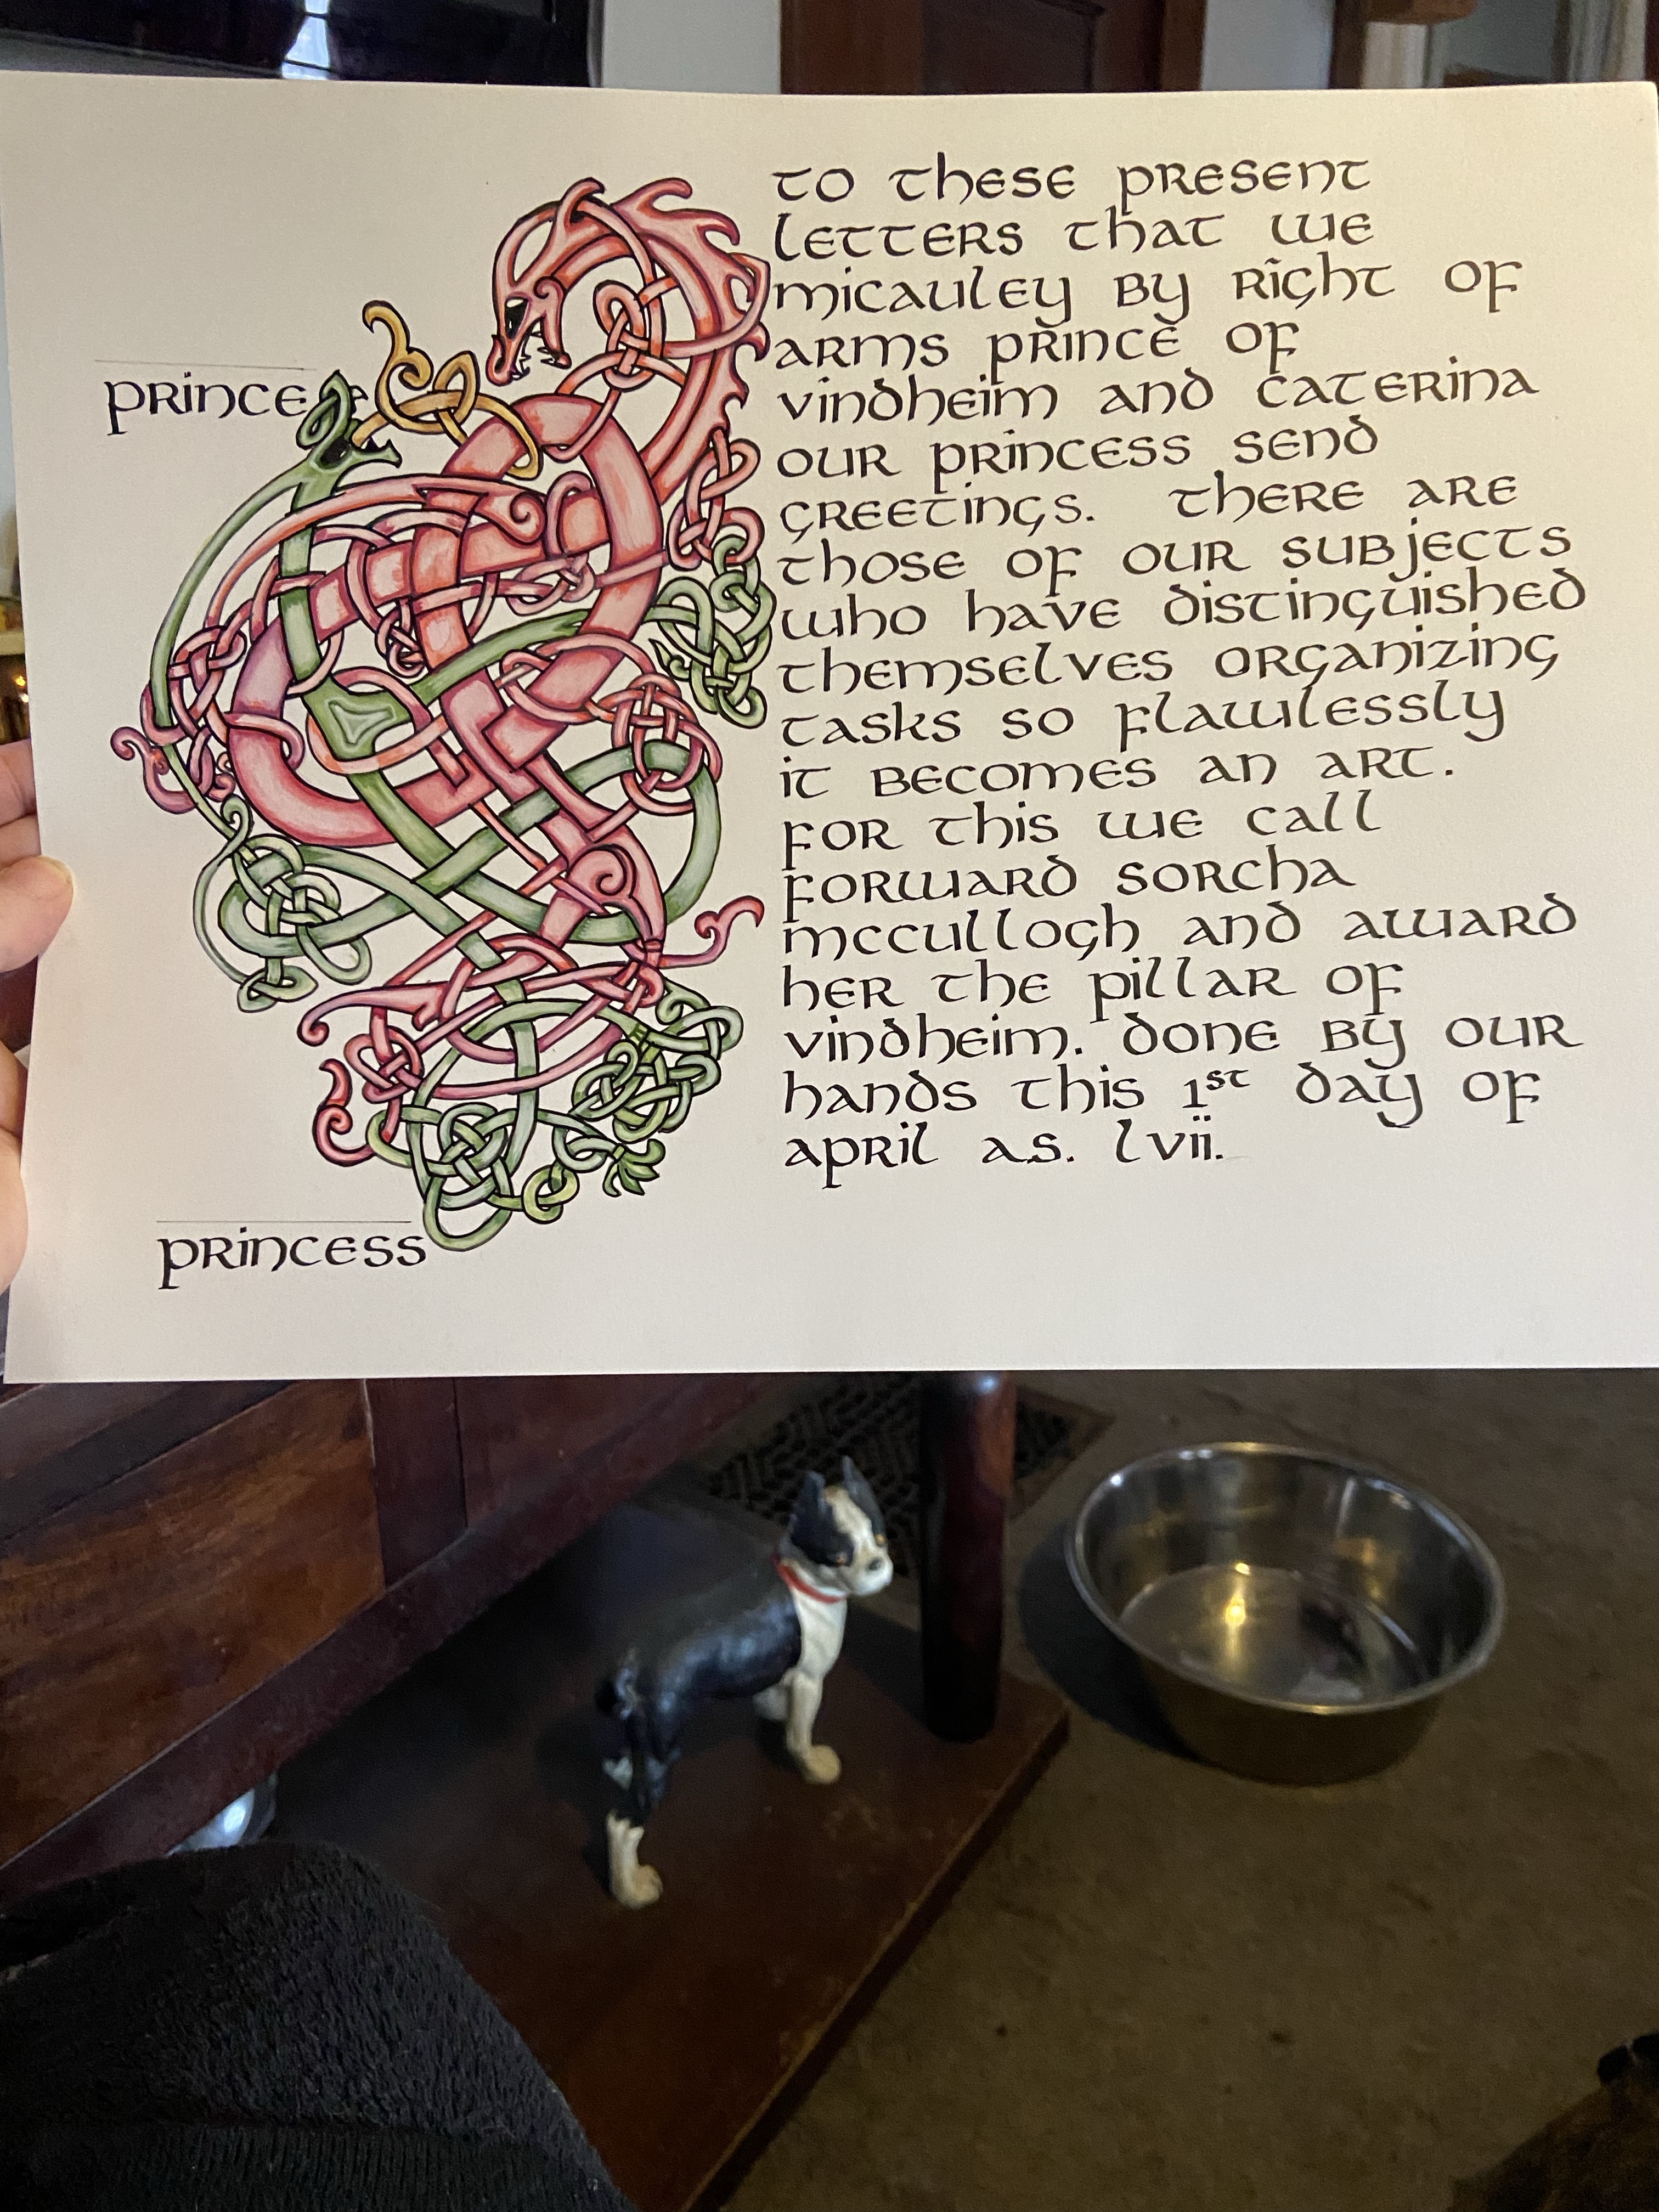 to these present
letters that we
micauley by right of
arms prince of
vindheim and caterina
our princess send
greetings. there are
those of our subjects
who have distinguished
themselves organizing
tasks so flawlessly
it becomes an art.
for this we call
forward sorcha
mccullogh and award
her the pillar of
vindheim. done by our
hands this 1st day of
april a.s. lvii.
prince
princess